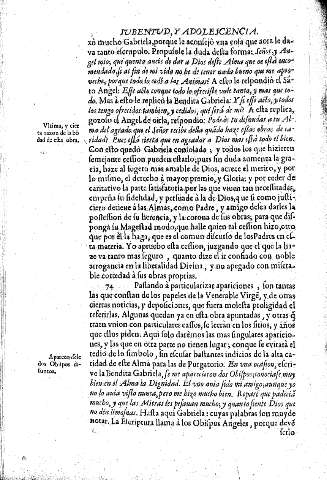 IUBENTUD, Y ADOLESCENCIA.
xò mucho Gabriela, porque le aconsejò una cosa que acà le da-
va tanto escrupulo. Propusole la duda desta forma: Señor, y An-
gel mio, què quenta aveis de dar à Dios deste Alma que os està enco-
mendada, si al fin de mi vida no he de tener nada bueno que me apro-
veche, porque todo lo cedì à las Animas? A esto respondiò el San-
to Angel: Esse Alma que todo lo ofreciste vale tanto, y mas que to-
do. Mas à esto le replicò la Bendita Gabriela: Y si esse Alma, y todos
los tengo ofrecidos tambien, y cedidos, què serà de mi? A esta replica,
gozoso el Angel de oirla, respondiò:
del agrado que el Señor recibe
ridad? Pues està cierta que en agradar à Dios mas està todo el bien.
Con esto quedò Gabriela consolada; y todos los que hizieren
semejante cession pueden estarlo; pues sin duda aumenta la gra-
cia, haze al sugeto mas amable de Dios, acrece el merito, y por
lo mismo, el derecho à mayor premio, y Gloria; y por ceder de
caritativo la parte satisfatoria, por las que viven tan necessitadas,
empeña su fidelidad, y persuade à la de Dios, que si como justi-
ciero detiene à las Almas, como Padre, y amigo desea darles la
possession de su herencia, y la corona de las obras, para que dis-
ponga su Magestad modo, que halle quien tal cession hizo, otro
que por èl la haga, que es el comun discurso de los Padres en es-
ta materia. Yo apruebo esta cession, juzgando que el que la ha-
ze va tanto mas seguro, quanto dize el ir confiado con noble
arrogancia en la liberalidad Divina, y no apegado con misera-
ble cortedad à sus obras proprias.
74 Passando à particularizar apariciones, son tantas
las que constan de los papeles de la Venerable Virgẽ, y de otras
ciertas noticias, y deposiciones, que fuera molesta prolixidad el
referirlas. Algunas quedan ya en esta obra apuntadas, y otras q̃
traen vnion con particulares casos, se leeràn en los sitios, y años
que ellos piden. Aqui solo darèmos las mas singulares aparicio-
nes, y las que en otra parte no tienen lugar, conque se evitarà el
tedio de lo sumo, sin escusar bastantes indicios de la alta cari-
dad de este Alma para las de Purgatorio. En vna ocasion, escri-
ve la Bendita Gabriela, se me aparecieron dos Obispos; conociales muy
bien en el Alma la Dignidad. El vno avia sido mi amigo, aunque yo
no le avia visto nunca, pero me hizo mucho bien. Reparè que padeciã
mucho, y que las Mitras les pesavan mucho; y quanto siente Dios que
no dèn limosnas. Hasta aqui Gabriela: cuyas palabras son muy de
notar. La Escriptura llama à los Obispos Angeles, porque deve
serlo
Vltima, y cier-
ta razon de la bõ-
dad de esta obra.
Aparecensele
dos Obispos di-
funtos.